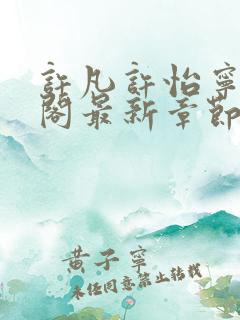 許凡許怡寧
閣最新章節
黃子寧
未经同意禁止转载